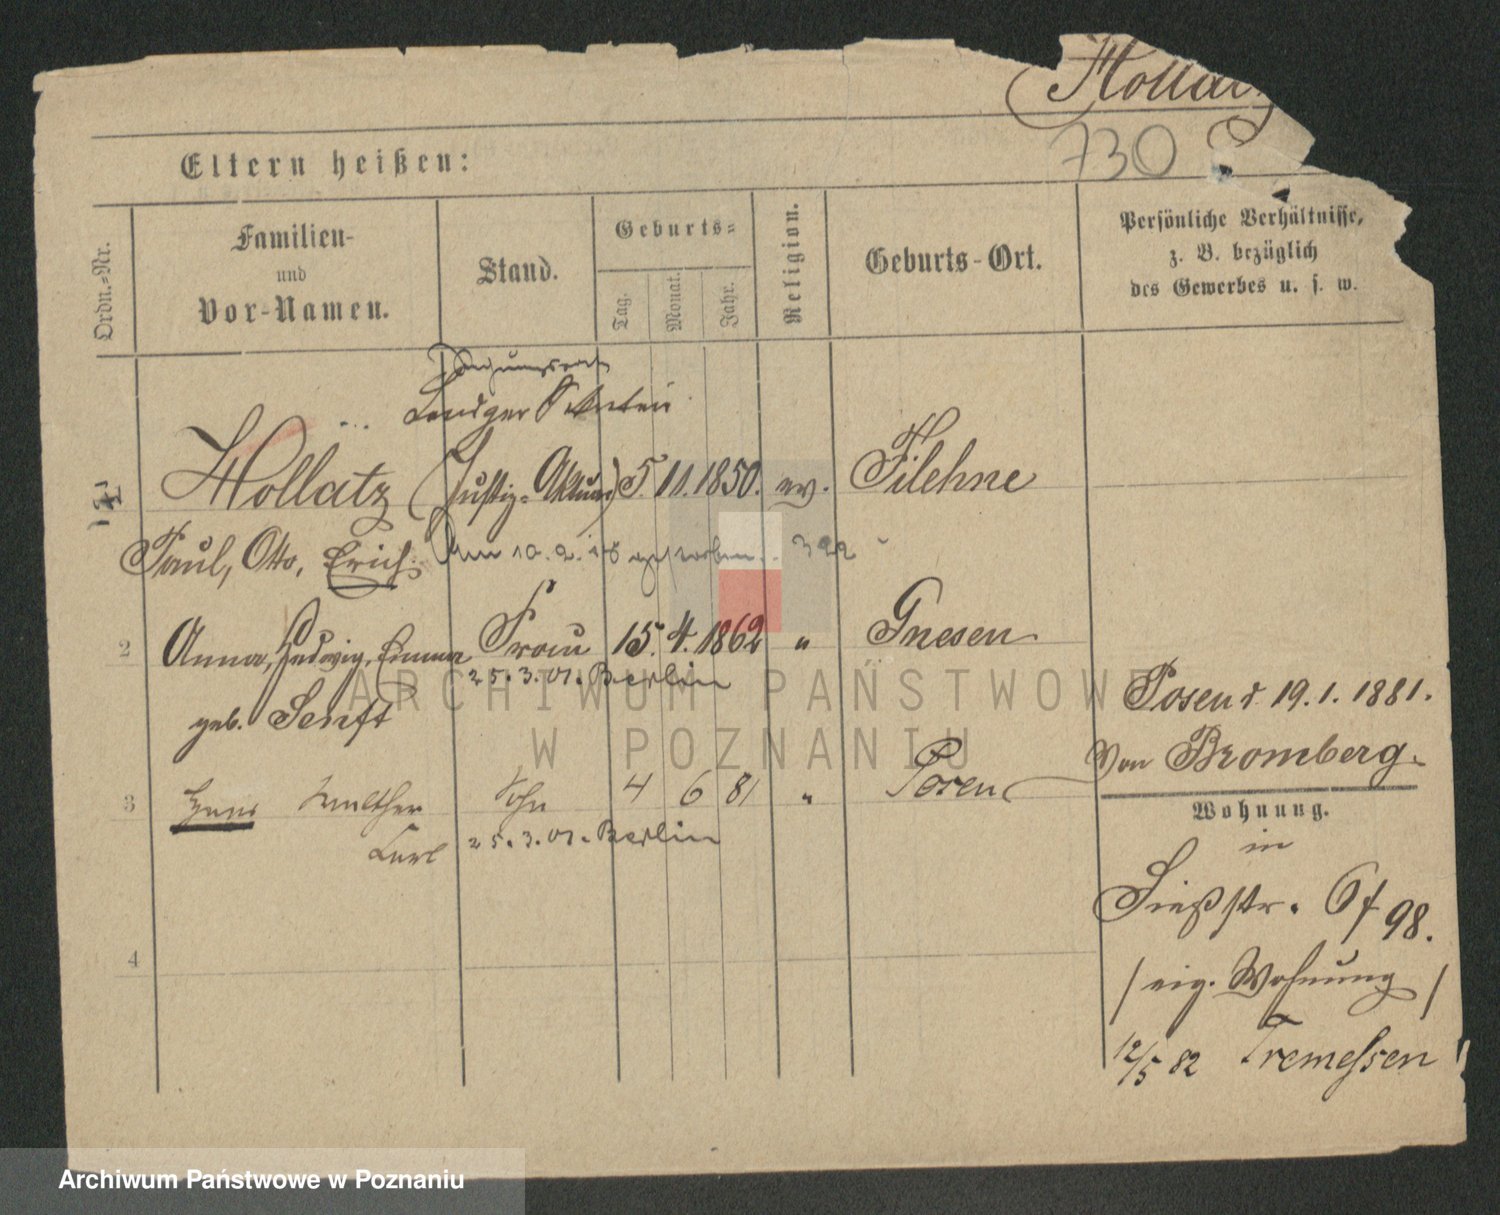 Hollatz
730
Eltern heißen:
Ordn.-Nr.
Familien-
und
Vor-Namen.
Stand.
Geburts-
Tag.
Monat.
Jahr.
Religion.
Geburts-Ort.
Persönliche Verhältnisse,
z. B. bezüglich
des Gewerbes u. s. w.
Landger Sekretair
Hollatz (Justiz-Aktuar) 5. 11. 1850. ev. Filehne
Paul, Otto, Erich. gestorben
2 Anna, Hedwig, Emma Frau 15. 4. 1862 " Gnesen
25.3.01. Berlin
geb. Senft
Posen d 19. 1. 1881.
von Bromberg.
3 Hans Walther Sohn 4 6 81 " Posen
Curl
25.3.01. Berlin
Wohnung.
in
98.
4
/ eig. Wohnung /
12/5 82 Tremessen
ARCHIWUM PAŃSTWOWE
W POZNANIU
Archiwum Państwowe w Poznaniu